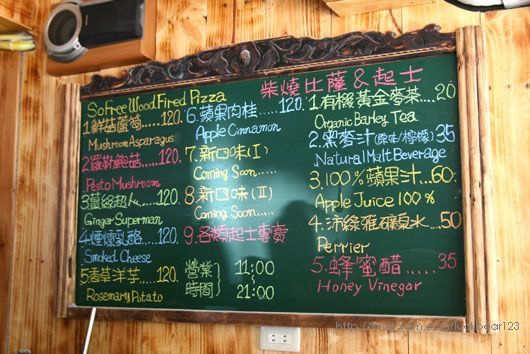 柴燒比薩&起士
SoFree Wood Fired Pizza
1.鮮菇蘆筍......120.
Mushroom Asparagus
2.羅勒鮑菇......120.
Pesto Mushroom
3.薑絲超人......120.
Ginger Superman
4.煙燻乳酪......120.
Smoked Cheese
5.香草洋芋......120.
Rosemary Potato
6.蘋果肉桂......120.
Apple Cinnamon
7.新口味(I)
Coming Soon......
8.新口味(II)
Coming Soon......
9.各類起士專賣
營業時間
11:00
21:00
1.有機黃金麥茶....20
Organic Barley Tea
2.黑麥汁(原味/檸檬)35
Natural Malt Beverage
3.100%蘋果汁...60.
Apple Juice 100%
4.沛綠雅礦泉水...50
Perrier
5.蜂蜜醋.....35
Honey Vinegar